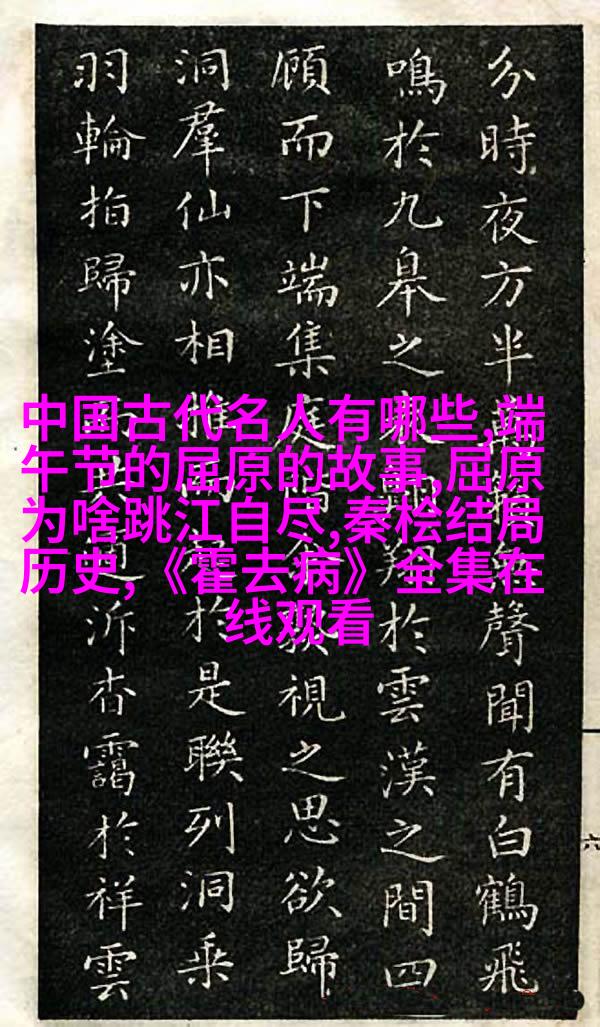 分時夜方半聲聞有白鶴飛
鳴於九皋之翔於雲漢之間四
顧而下端集庭視之思欲歸
洞羣仙亦相於是聯列洞乘
羽輪拍歸塗泝杏靄於祥雲
中国古代名人有哪些,端
午节的屈原的故事,屈原
为啥跳江自尽,秦桧结局
历史,《霍去病》全集在
线观看
六